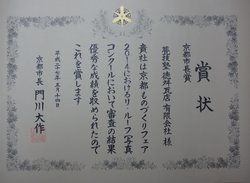 賞状
京都市長賞
有限会社 様
貴社は京都ものづくりフェア
2014におけるリ・ルーフ写真
コンクールにおいて審査の結果
優秀な成績を収められたので
これを賞します
平成二十七年三月十四日
京都市長 門川大作